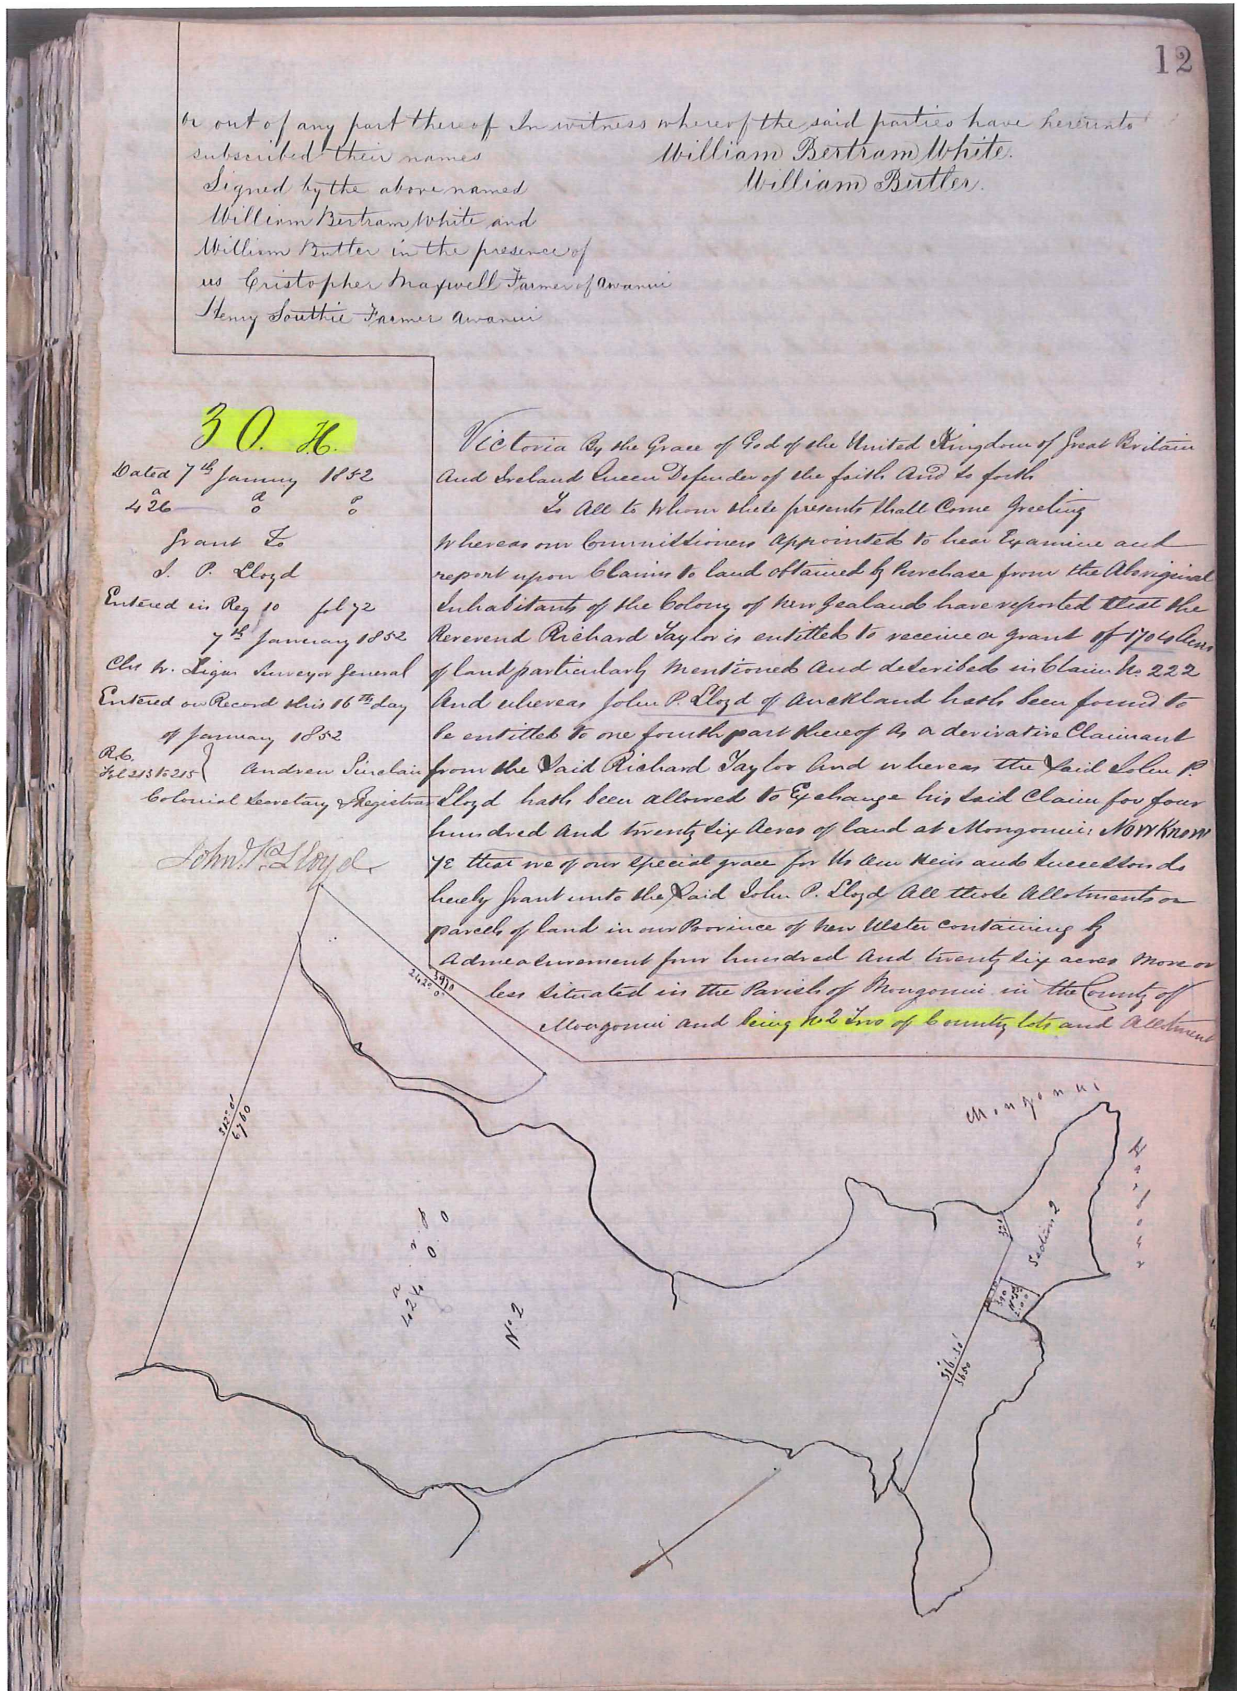 12
or out of any part thereof In witness whereof the said parties have hereunto
subscribed their names William Bertram White.
Signed by the above named William Butler.
William Bertram White and
William Butler in the presence of
us Cristopher Maxwell Farmer of Awanui
Henry Southie Farmer Awanui
30. H.
Dated 7th January 1852
a R P
426 0 0
Grant To
J. P. Lloyd
Entered in Reg 10 fol 72
7th January 1852
Chs W. Ligar Surveyor General
Entered on Record this 16th day
of January 1852
R.6.
Fol 213 to 215 Andrew Sinclair
Colonial Secretary & Registrar
John P. Lloyd
Victoria By the Grace of God of the United Kingdom of Great Britain
And Ireland Queen Defender of the faith And so forth
To All to Whom these presents Shall Come Greeting
Whereas our Commissioners appointed to hear Examine and
report upon Claims to land obtained by Purchase from the Aboriginal
Inhabitants of the Colony of New Zealand have reported that the
Reverend Richard Taylor is entitled to receive a grant of 1704 Acres
of land particularly Mentioned And described in Claim No. 222
And whereas John P. Lloyd of Auckland hath been found to
be entitled to one fourth part thereof As a derivative Claimant
from the Said Richard Taylor And whereas the Said John P.
Lloyd hath been allowed to Exchange his said Claim for four
hundred And twenty six Acres of land at Mongonui: Now Know
Ye that we of our special grace for Us Our Heirs and Successors do
hereby Grant unto the Said John P. Lloyd All those Allotments or
parcels of land in our Province of New Ulster containing by
Admeasurement four hundred And twenty six acres More or
less situated in the Parish of Mongonui in the County of
Mongonui and being No 2 Two of Country lots and Allotment
3910
242° 0'
312° 0'
6760
a r p
424 0 0
No 2
Mongonui
Harbour
Section 2
390
316° 30'
3650